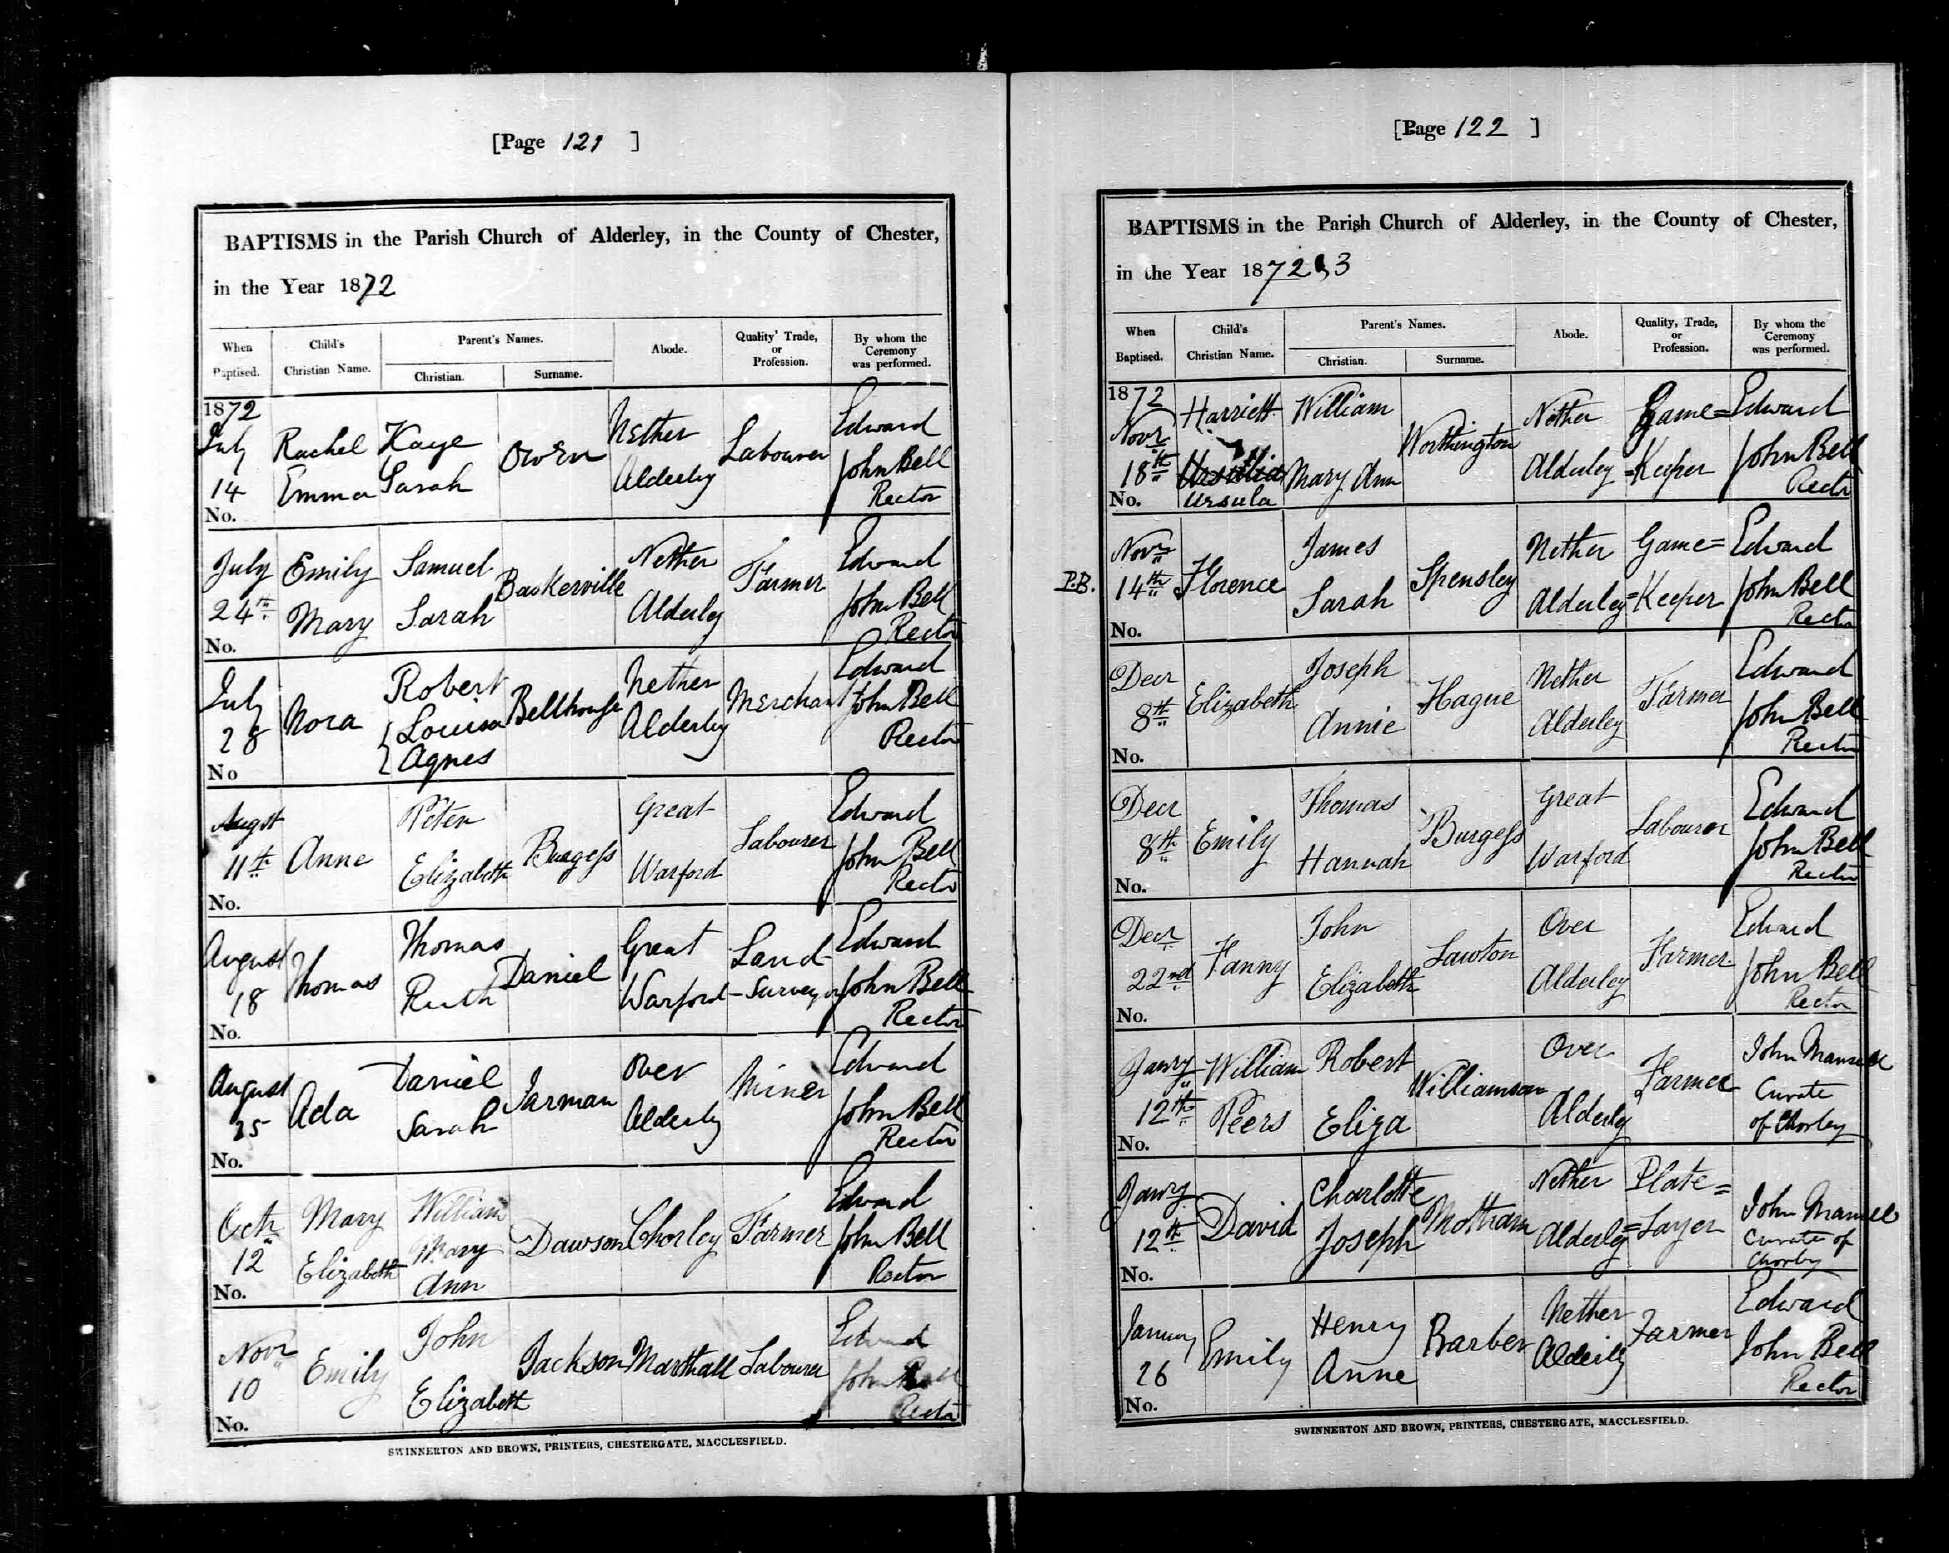 [Page 121 ]
BAPTISMS in the Parish Church of Alderley, in the County of Chester,
in the Year 1872
When Baptised. Child's Christian Name. Parent's Names. Christian. Surname. Abode. Quality, Trade, or Profession. By whom the Ceremony was performed.
1872
July 14 Rachel Emma Kaye Sarah Owen Nether Alderley Labourer Edward John Bell Rector
No.
July 24th Emily Mary Samuel Sarah Baskerville Nether Alderley Farmer Edward John Bell Rector
No.
July 28 Nora Robert Louisa Agnes Bellhouse Nether Alderley Merchant Edward John Bell Rector
No
Augst 11th Anne Peter Elizabeth Burgess Great Warford Labourer Edward John Bell Rector
No.
August 18 Thomas Thomas Ruth Daniel Great Warford Land-Surveyor Edward John Bell Rector
No.
August 25 Ada Daniel Sarah Jarman Over Alderley Miner Edward John Bell Rector
No.
Octr 12 Mary Elizabeth William Mary Ann Dawson Chorley Farmer Edward John Bell Rector
No.
Novr 10 Emily John Elizabeth Jackson Marthall Labourer Edward John Bell Rector
No.
SWINNERTON AND BROWN, PRINTERS, CHESTERGATE, MACCLESFIELD.
[Page 122 ]
BAPTISMS in the Parish Church of Alderley, in the County of Chester,
in the Year 1872,3
When Baptised. Child's Christian Name. Parent's Names. Christian. Surname. Abode. Quality, Trade, or Profession. By whom the Ceremony was performed.
1872
Novr 18th Harriett Ursula William Mary Ann Worthington Nether Alderley Game=Keeper Edward John Bell Rector
No.
P.B. Novr 14th Florence James Sarah Spensley Nether Alderley Game=Keeper Edward John Bell Rector
No.
Decr 8th Elizabeth Joseph Annie Hague Nether Alderley Farmer Edward John Bell Rector
No.
Decr 8th Emily Thomas Hannah Burgess Great Warford Labourer Edward John Bell Rector
No.
Decr 22nd Fanny John Elizabeth Lawton Over Alderley Farmer Edward John Bell Rector
No.
Janry 12th William Peers Robert Eliza Williamson Over Alderley Farmer John Mansell Curate of Chorley
No.
Janry 12th David Charlotte Joseph Mottram Nether Alderley Plate=Layer John Mansell Curate of Chorley
No.
January 26 Emily Henry Anne Barber Nether Alderley Farmer Edward John Bell Rector
No.
SWINNERTON AND BROWN, PRINTERS, CHESTERGATE, MACCLESFIELD.